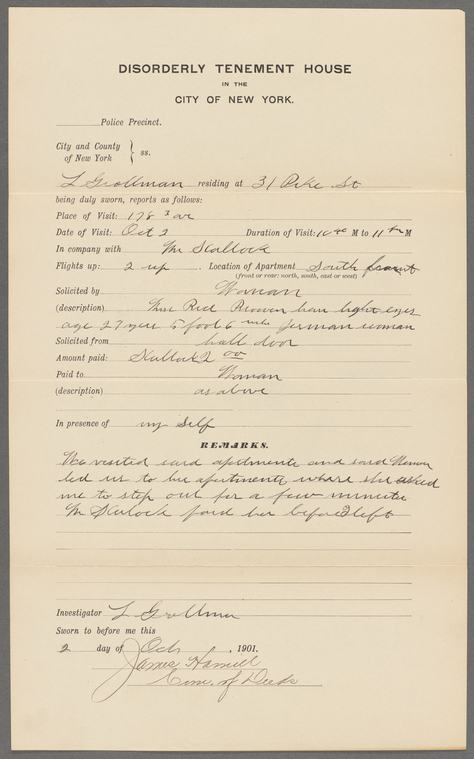 DISORDERLY TENEMENT HOUSE
IN THE
CITY OF NEW YORK.
Police Precinct.
City and County
of New York } ss.
L Grollman residing at 31 Pike St
being duly sworn, reports as follows:
Place of Visit: 178 3 av
Date of Visit: Oct 2 Duration of Visit: 10 M to 11 M
In company with Mr
Flights up: 2 up. Location of Apartment South front
(front or rear: north, south, east or west)
Solicited by Woman
(description) Red light eyes
age 27 years 5 foot 6 german woman
Solicited from hall door
Amount paid: 2 00
Paid to Woman
(description) as above
In presence of my Self
REMARKS.
We visited said and said Woman
led us to her where she asked
me to step out for a few
Mr paid her before I left
Investigator L Grollman
Sworn to before me this
2 day of Oct, 1901.
James
Com. of Deeds